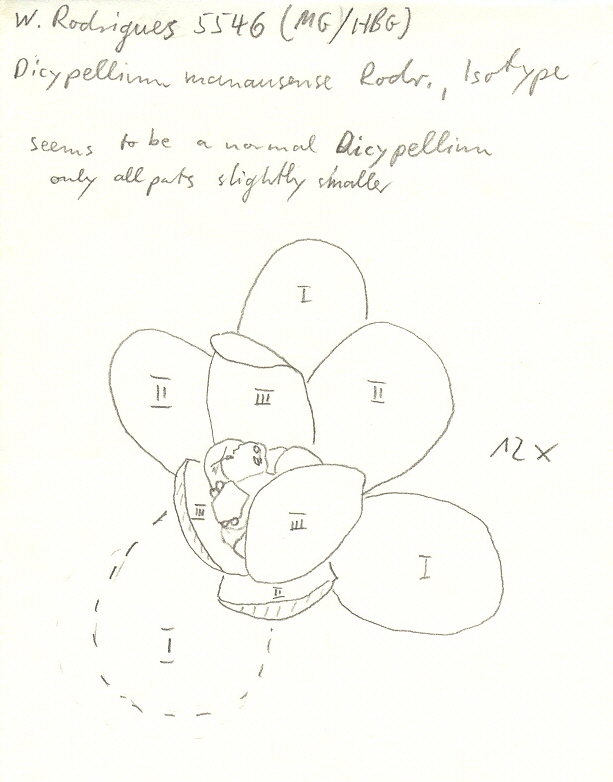 W. Rodrigues 5546 (MG/HBG)
Dicypellium manausense Rodr., Isotype
seems to be a normal Dicypellium
only all parts slightly smaller
I
II
III
II
12 x
III
III
I
II
I